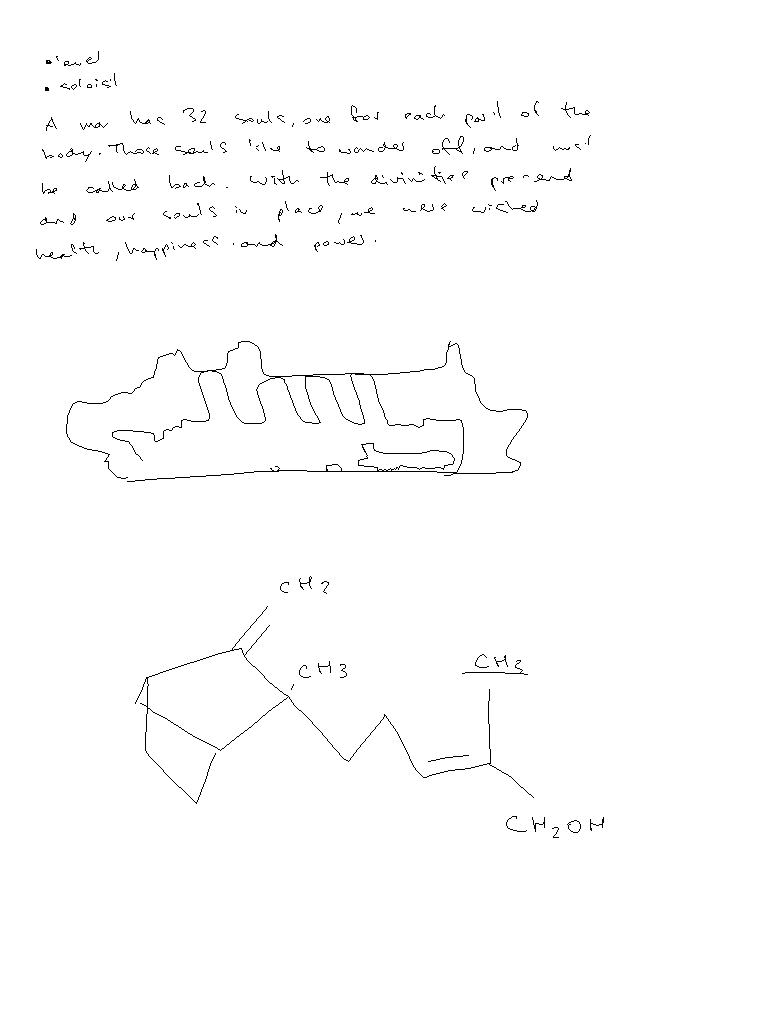 • soloist
A man has 32 souls, one for each part of the
body. Those souls like to wander off, and must
be called back. With the divinities present
and our souls in place, we were wished
health, happiness and power.
CH2
CH3
CH3
CH2OH